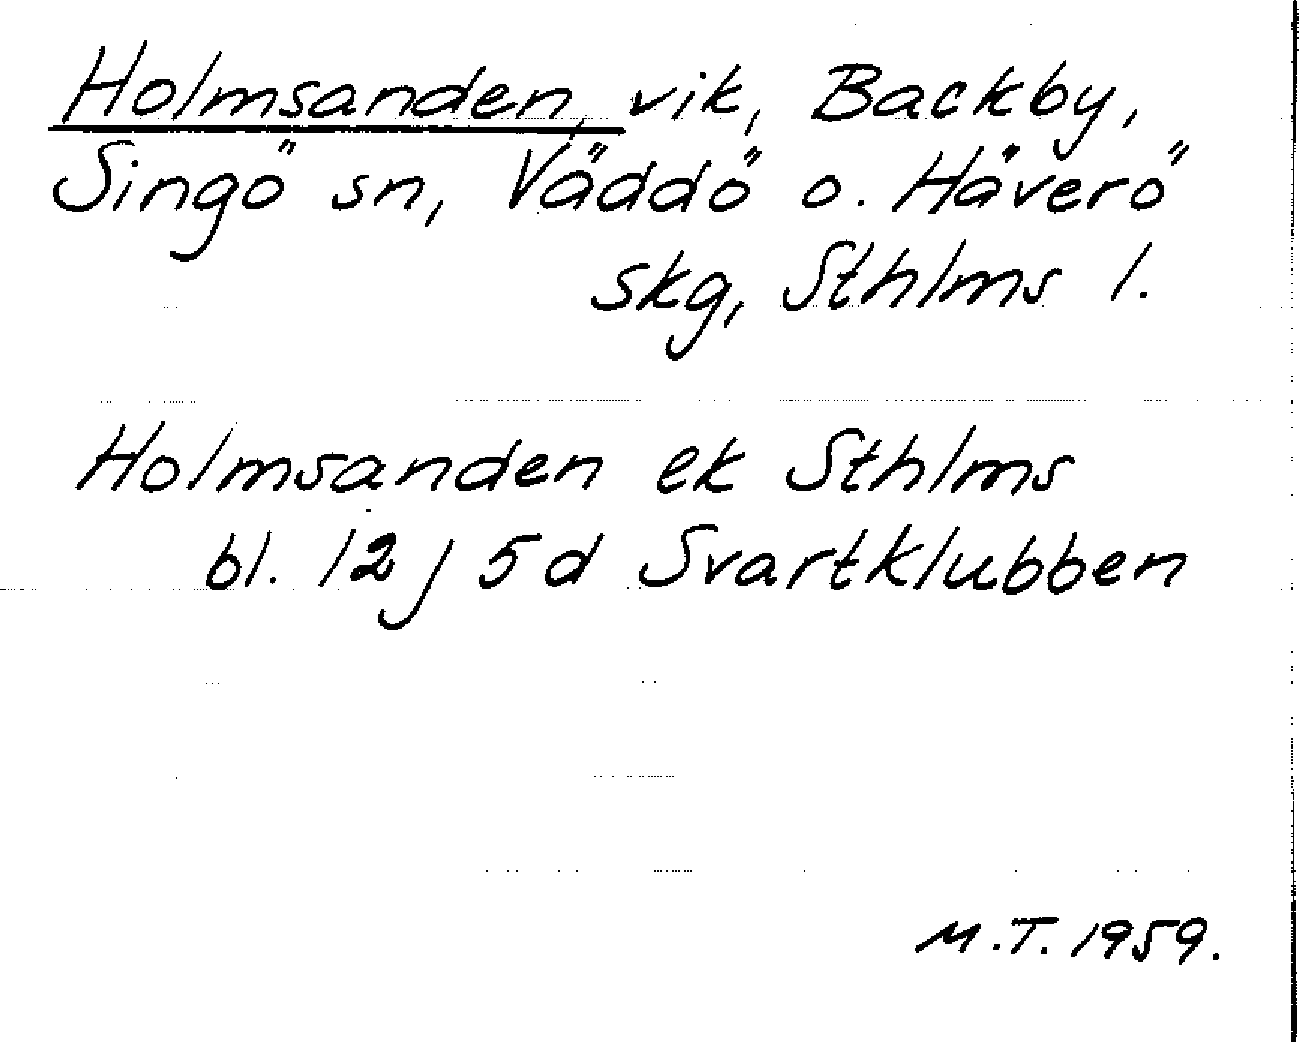 Holmsanden, vik, Backby,
Singö sn, Väddö o. Håverö
skg, Sthlms l.
Holmsanden ek Sthlms
bl. 12j 5d Svartklubben
M.T. 1959.